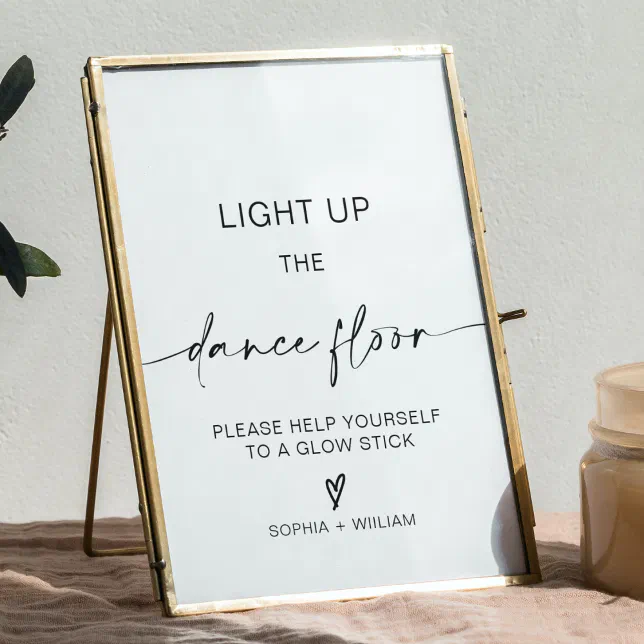 LIGHT UP
THE
dance floor
PLEASE HELP YOURSELF
TO A GLOW STICK
SOPHIA + WIILIAM